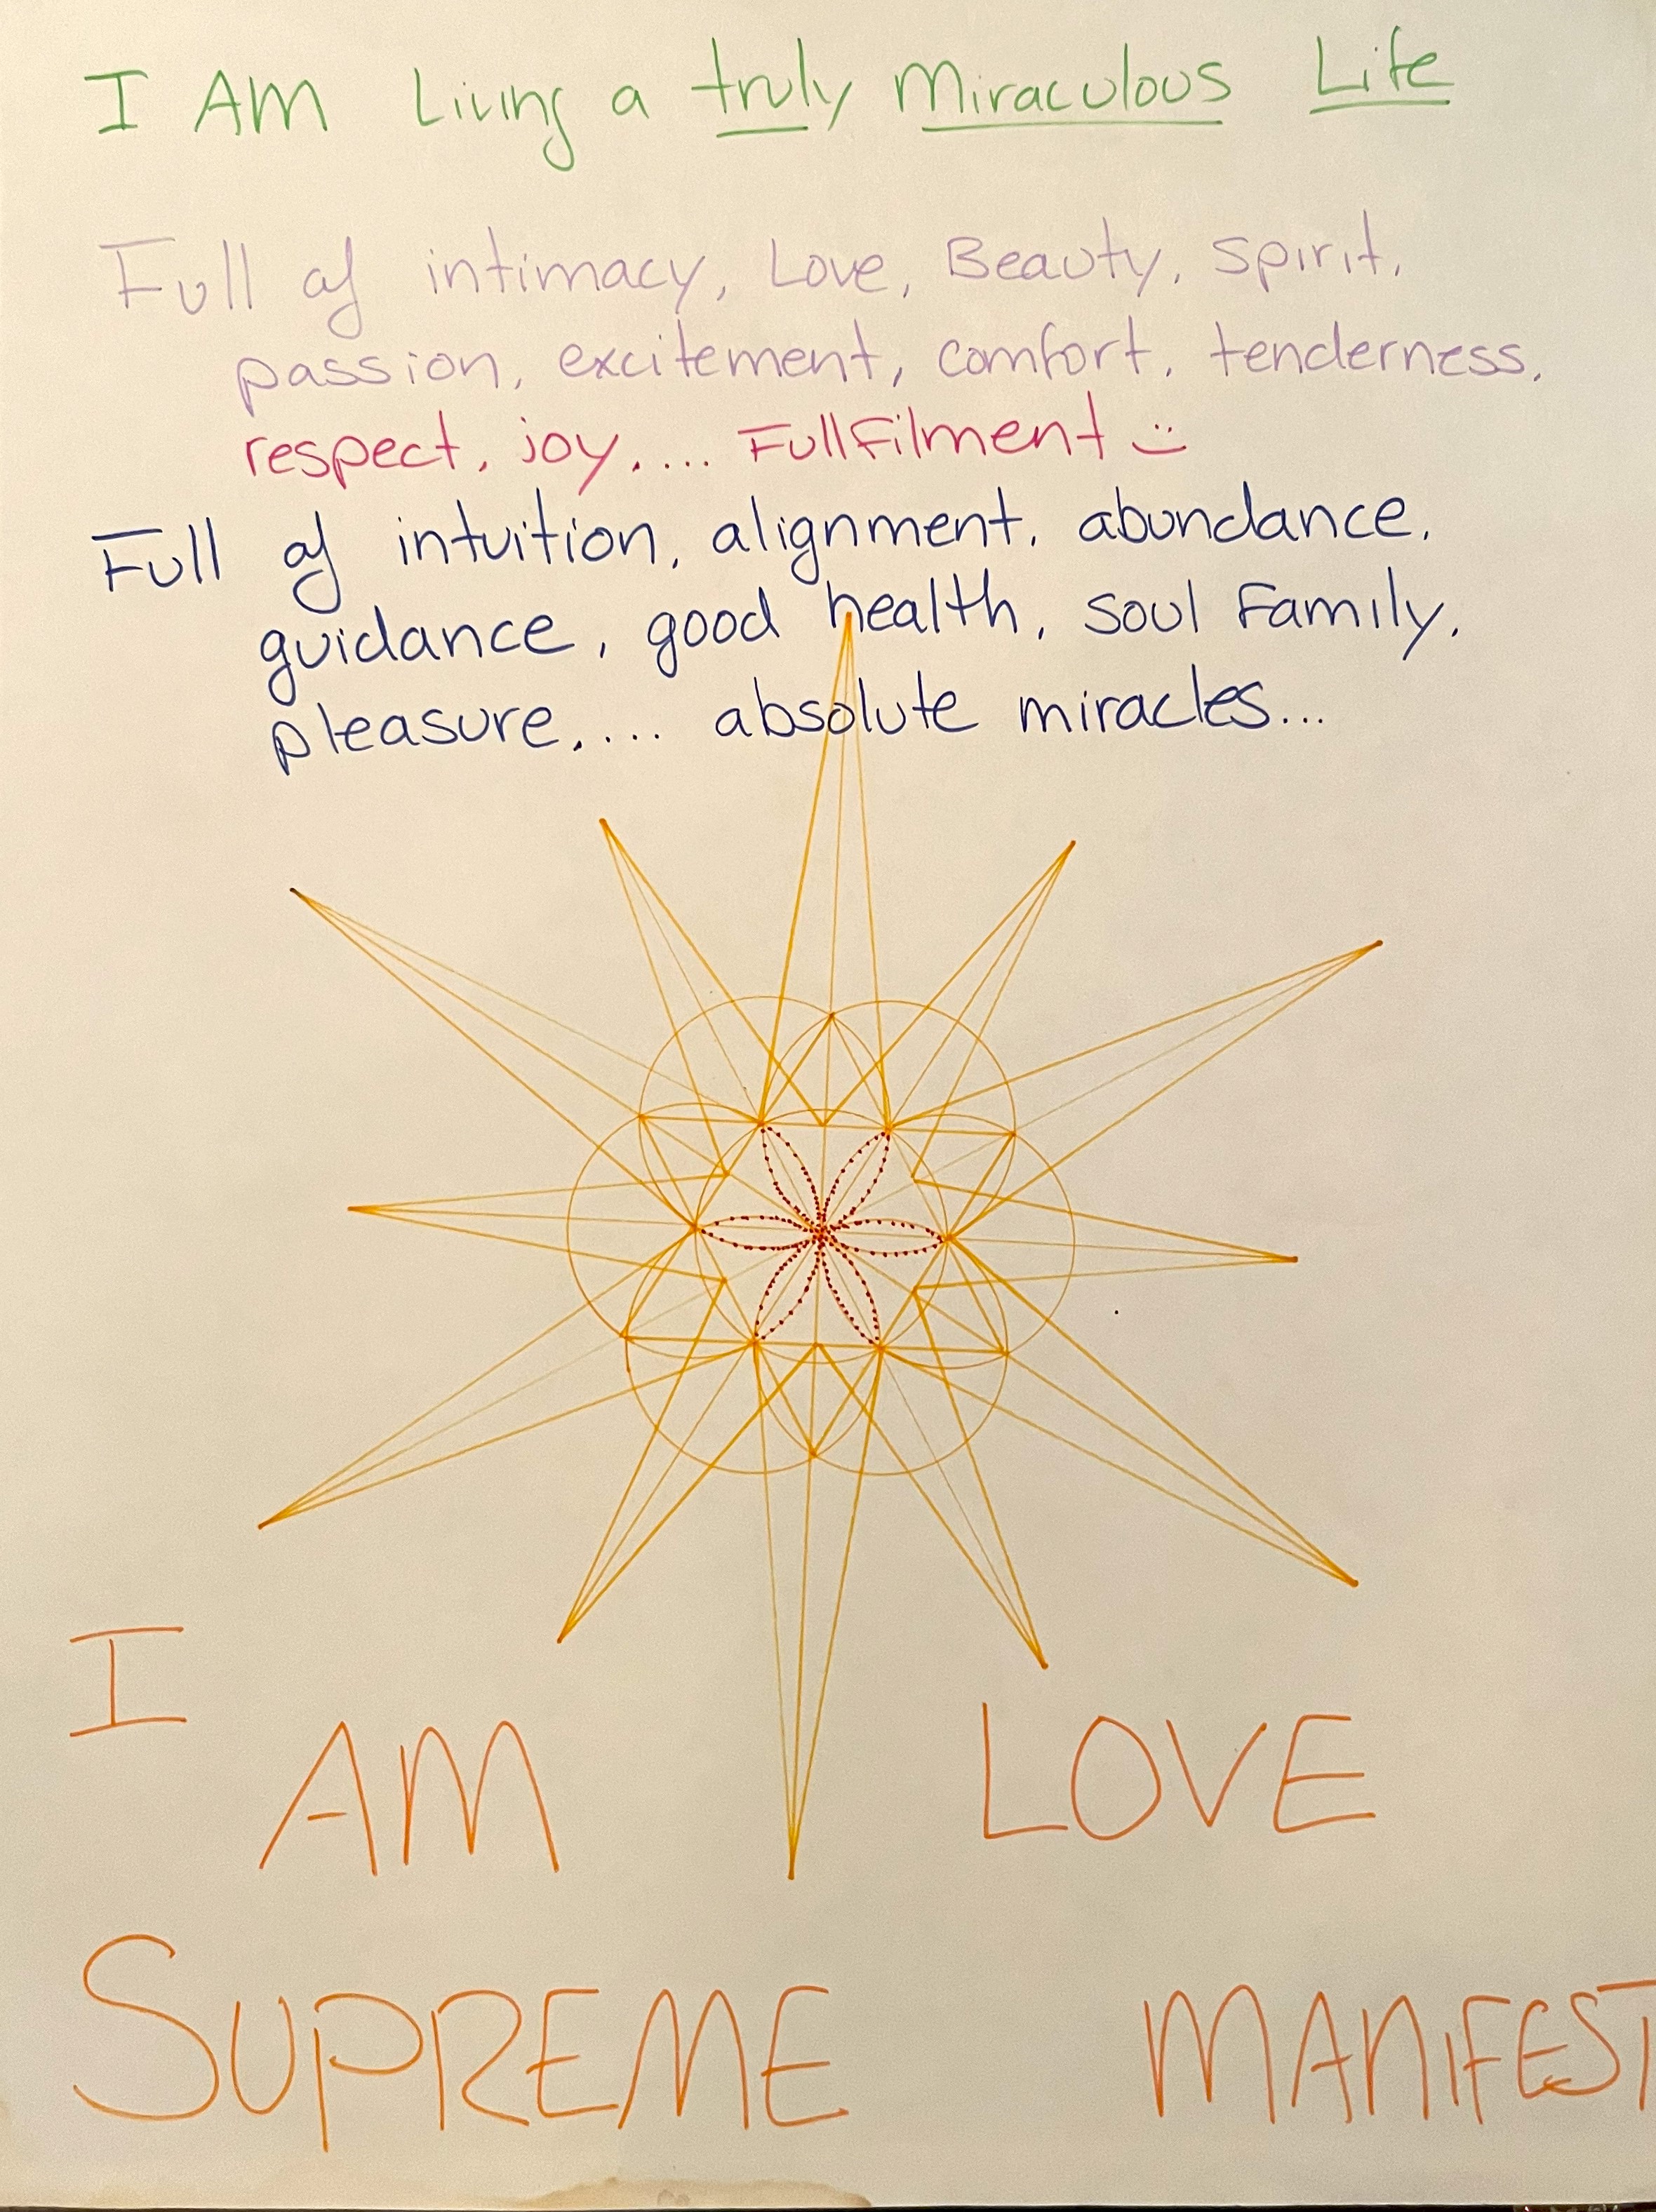 I AM Living a truly Miraculous Life
Full of intimacy, Love, Beauty, Spirit,
passion, excitement, comfort, tenderness,
respect, joy,.... FullFilment :)
Full of intuition, alignment, abundance,
guidance, good health, soul Family,
pleasure,.... absolute miracles...
I
AM LOVE
SUPREME MANIFEST